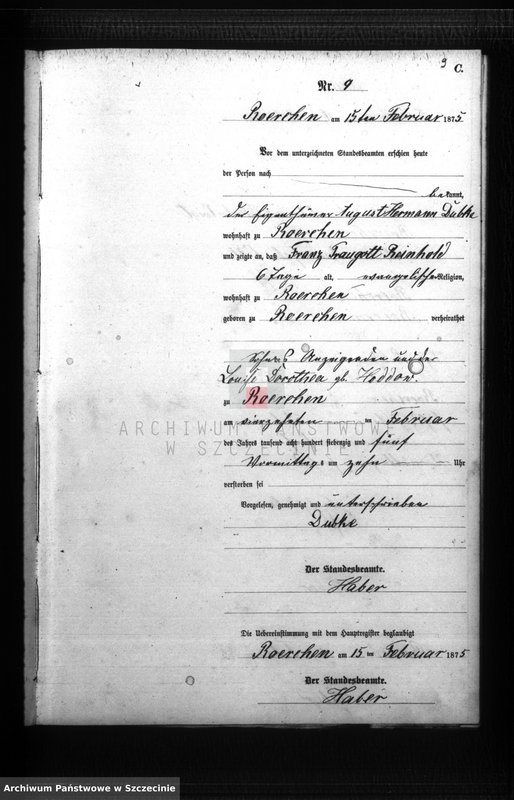 9 C.
Nr. 9
Roerchen am 15ten Februar 1875
Vor dem unterzeichneten Standesbeamten erschien heute
der Person nach
bekannt,
der Eigenthümer August Hermann Dubke
wohnhaft zu Roerchen
und zeigte an, daß Franz Traugott Reinhold
6 Tage alt, evangelischer Religion,
wohnhaft zu Roerchen
geboren zu Roerchen verheirathet
Sohn des Anzeigenden und der
Louise Dorothea gb. Hoddow.
zu Roerchen
am vierzehnten ten Februar
des Jahres tausend acht hundert siebenzig und fünf
Vormittags um zehn Uhr
verstorben sei
Vorgelesen, genehmigt und unterschrieben
Dubke
Der Standesbeamte.
Haber
Die Uebereinstimmung mit dem Hauptregister beglaubigt
Roerchen am 15 ten Februar 1875
Der Standesbeamte.
Haber
ARCHIWUM PAŃSTWOWE
W SZCZECINIE
Archiwum Państwowe w Szczecinie